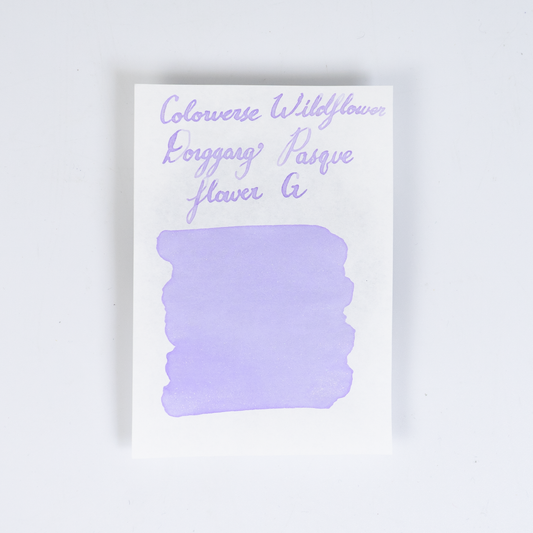 Colorverse Wildflower
Dorggarg Pasque
flower G